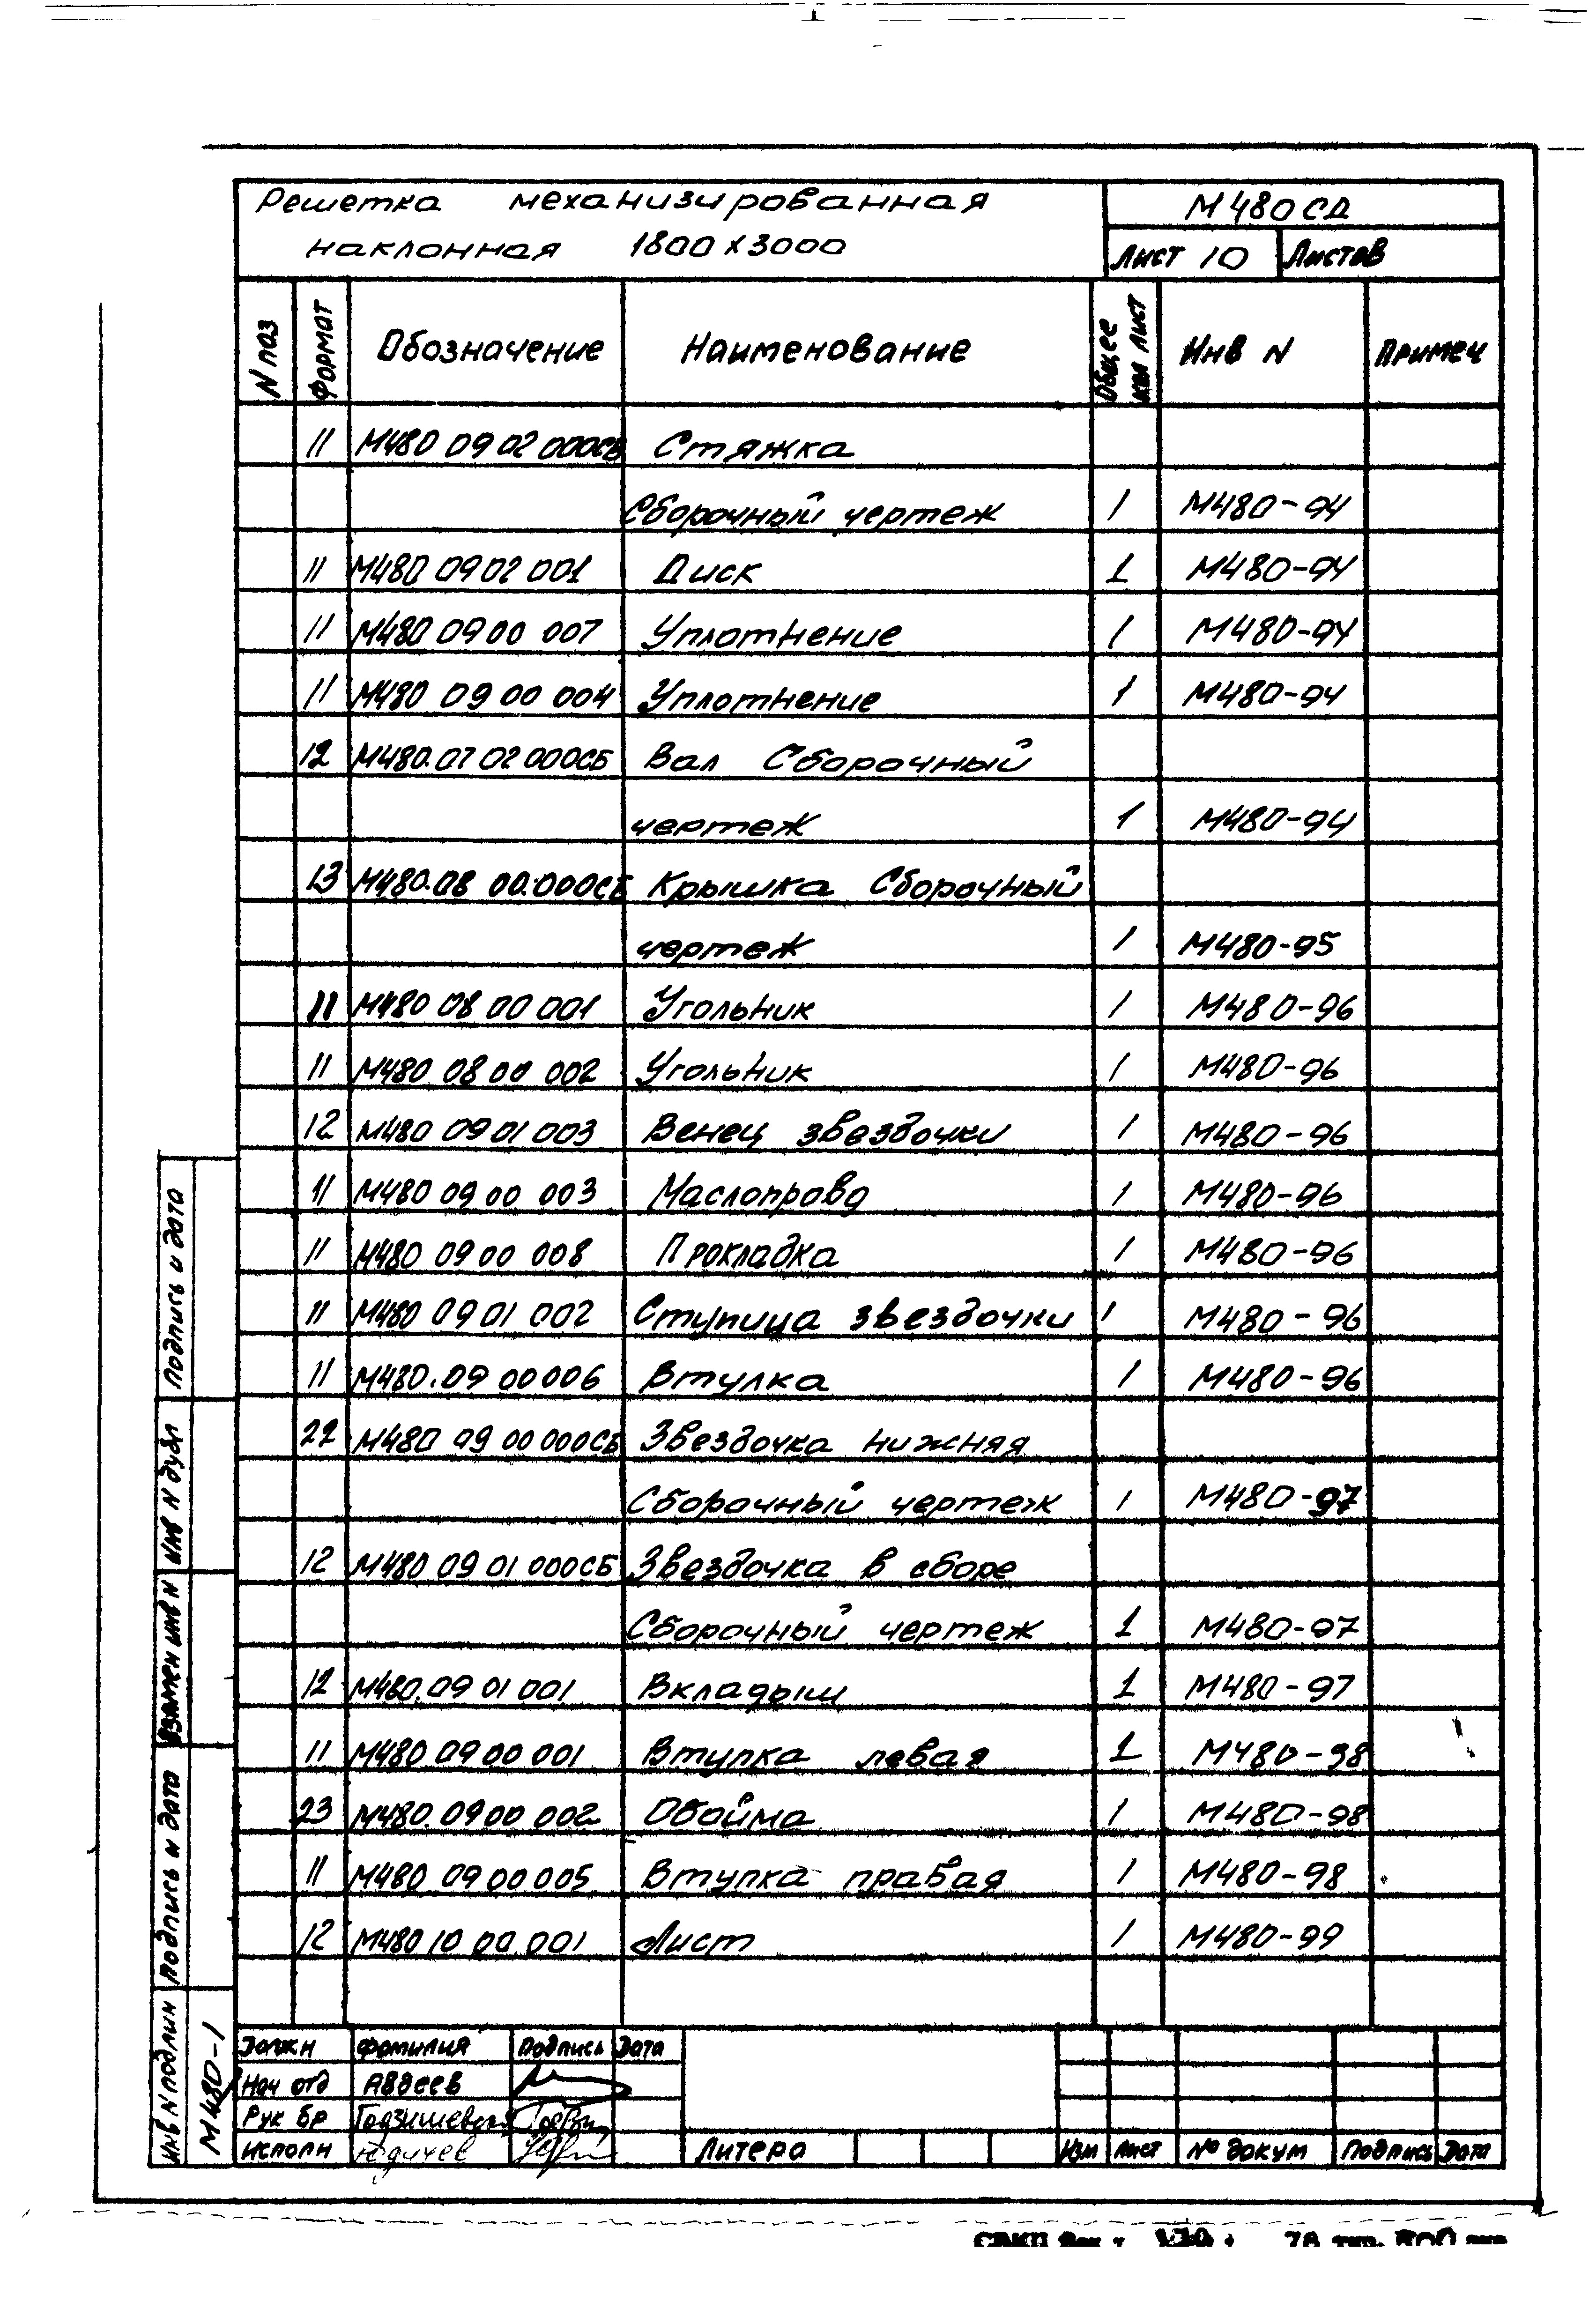 Решетка механизированная
М480СД
наклонная 1800х3000
Лист 10 Листов
N поз Формат Обозначение Наименование Общее кол лист Инв N Примеч
11 М480 09 02 000СБ Стяжка
Сборочный чертеж 1 М480-94
11 М480 09 02 001 Диск 1 М480-94
11 М480 09 00 007 Уплотнение 1 М480-94
11 М480 09 00 004 Уплотнение 1 М480-94
12 М480.07 02 000СБ Вал Сборочный
чертеж 1 М480-94
13 М480.08 00.000СБ Крышка Сборочный
чертеж 1 М480-95
11 М480 08 00 001 Угольник 1 М480-96
11 М480 08 00 002 Угольник 1 М480-96
12 М480 09 01 003 Венец звездочки 1 М480-96
11 М480 09 00 003 Маслопровд 1 М480-96
11 М480 09 00 008 Прокладка 1 М480-96
11 М480 09 01 002 Ступица звездочки 1 М480-96
11 М480.09 00 006 Втулка 1 М480-96
22 М480 09 00 000СБ Звездочка нижняя
Сборочный чертеж 1 М480-97
12 М480 09 01 000СБ Звездочка в сборе
Сборочный чертеж 1 М480-97
12 М480.09 01 001 Вкладыш 1 М480-97
11 М480.09 00 001 Втулка левая 1 М480-98
23 М480.09 00 002 Обойма 1 М480-98
11 М480 09 00 005 Втулка правая 1 М480-98
12 М480 10 00 001 Лист 1 М480-99
Подпись и дата
Инв N дубл
Взамен инв N
Подпись и дата
Инв N подлин
М480-1
Должн Фамилия Подпись Дата
Нач отд Авдеев
Рук бр
Исполн Юдичев
Литера
Изм Лист № докум Подпись Дата